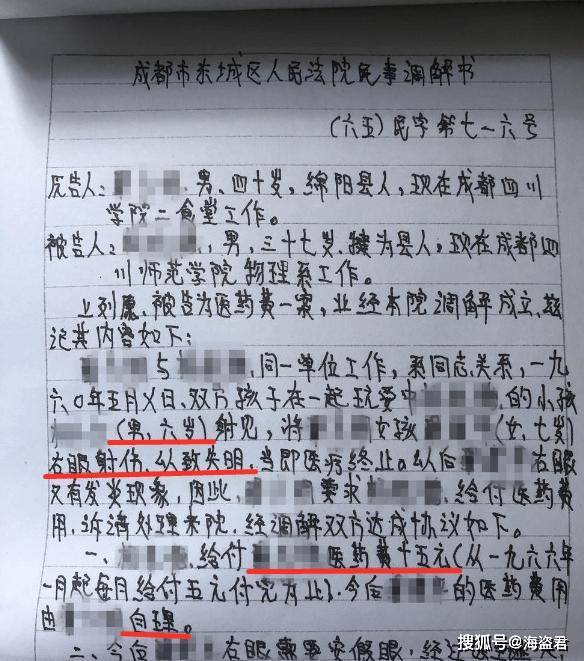 成都市东城区人民法院民事调解书
(六五)民字第七一六号
原告人: 男、四十岁,绵阳县人,现在成都四川
学院二食堂工作。
被告人: ,男,三十七岁,犍为县人,现在成都四
川师范学院物理系工作。
上列原、被告为医药费一案,业经本院调解成立,兹
记其内容如下:
与 同一单位工作,系同志关系,一九
六0年五月 日,双方孩子在一起玩耍中 的小孩
(男,六岁)射 ,将 女孩 (女,七岁)
右眼射伤,以致失明,当即医疗终止。以后 右眼
又有发炎现象,因此, 要求 给付医药费
用,诉请处理来院,经调解双方达成协议如下。
一、 给付 医药费十五元(从一九六六年
一月起每月给付五元付完为止),今后 的医药费用
由 自理。
二、今后 右眼 要安假眼,经
搜狐号@海盗君